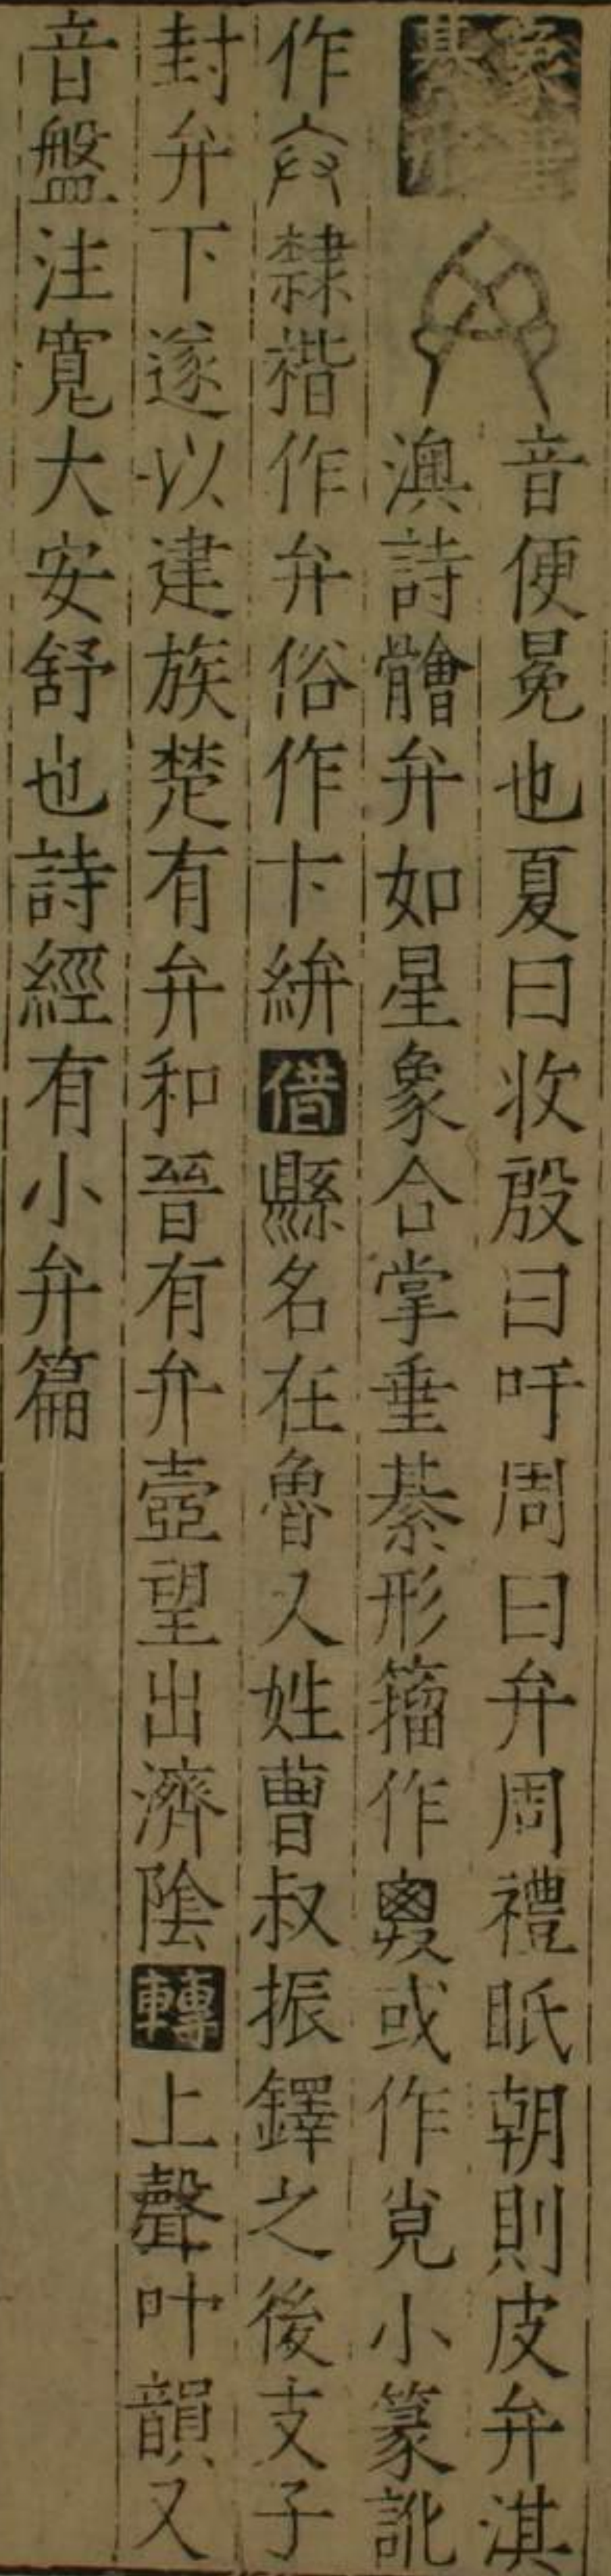 音便冕也夏曰收殷曰吁周曰弁周禮眂朝則皮弁淇
澳詩髗弁如星象合掌垂綦形籀作𠑹或作㒵小篆訛
作隸楷作弁俗作卞絣借縣名在魯又姓曹叔振鐸之後支子
封弁下遂以建族楚有弁和晉有弁壺望出濟陰轉上聲叶韻又
音盤注寬大安舒也詩經有小弁篇